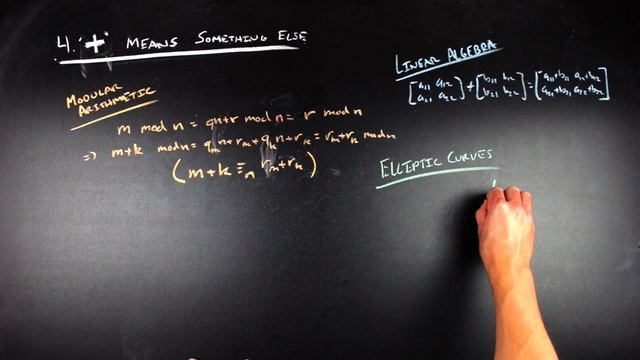 4. "+" MEANS SOMETHING ELSE
MODULAR
ARITHMETIC
m mod n = qn+r mod n = r mod n
=> m+k mod n = q_m n + r_m + q_k n + r_k = r_m + r_k mod n
(m+k ≡_n r_m + r_k)
LINEAR ALGEBRA
[a11 a12 a21 a22] + [b11 b12 b21 b22] = [a11+b11 a12+b12 a21+b21 a22+b22]
ELLIPTIC CURVES